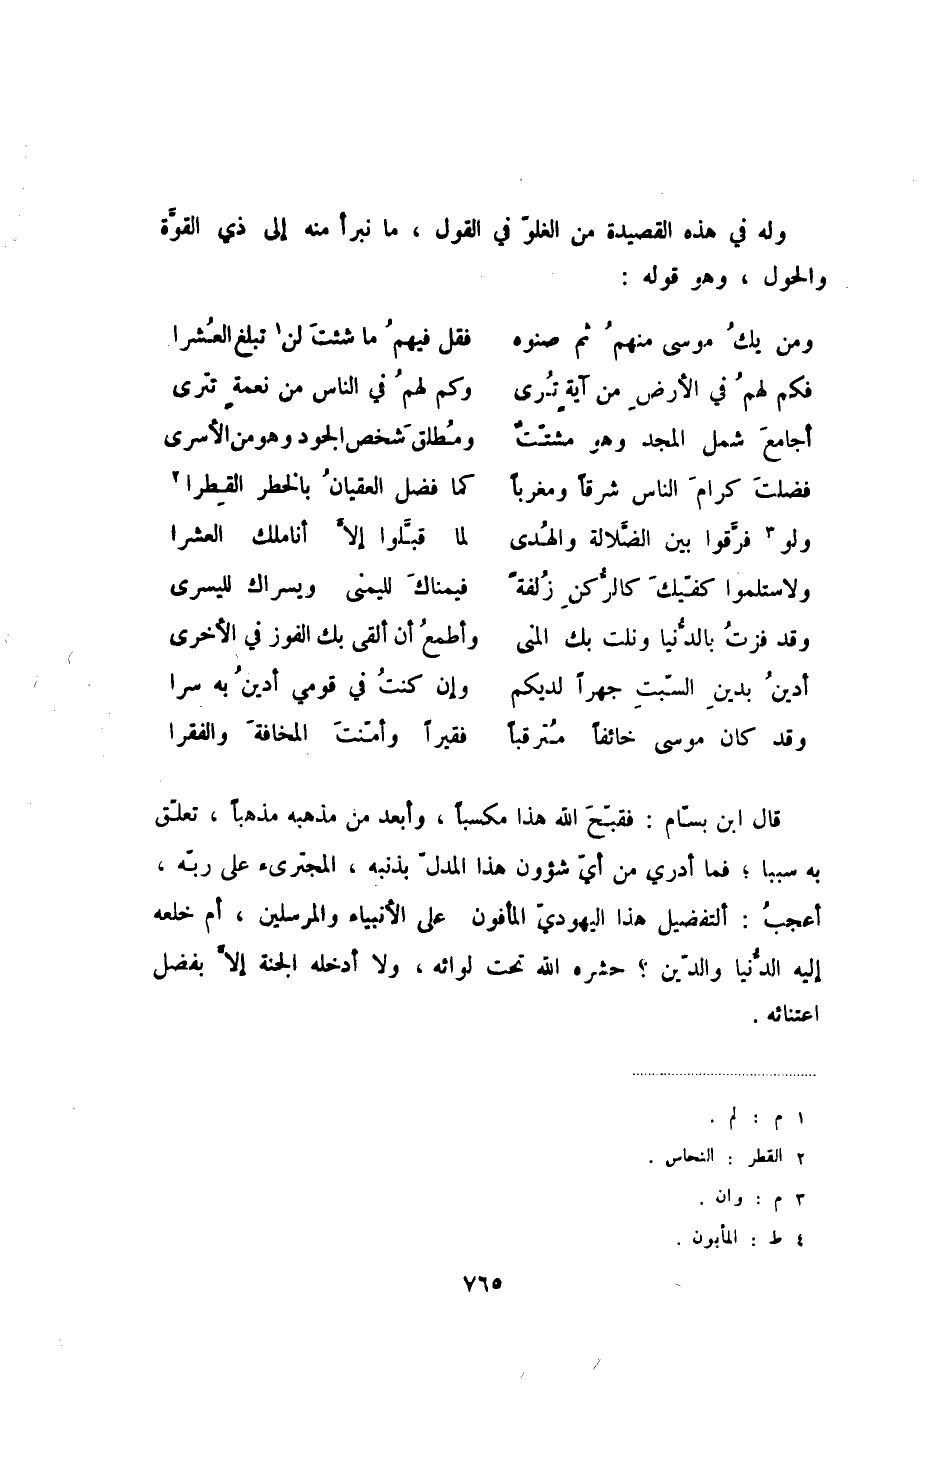 وله في هذه القصيدة من الغلوّ في القول ، ما نبرأ منه إلى ذي القوَّة
والحول ، وهو قوله :
ومن يكُ موسى منهمُ ثم صنوه فقل فيهمُ ما شئتَ لن١ تبلغ العُشرا
فكم لهمُ في الأرضِ من آيةٍ تُرى وكم لهمُ في الناس من نعمةٍ تترى
أجامعَ شمل المجد وهو مشتّتٌ ومُطلقَ شخص الجود وهو من الأسرى
فضلتَ كرامَ الناس شرقاً ومغرباً كما فضل العقيانُ بالخطر القِطرا٢
ولو٣ فرَّقوا بين الضَّلالة والهُدى لما قبَّلوا إلاَّ أناملك العشرا
ولاستلموا كفّيكَ كالرُّكنِ زُلفةً فيمناكَ لليمنى ويسراك لليسرى
وقد فزتُ بالدُّنيا ونلت بك المنى وأطمعُ أن ألقى بك الفوز في الأخرى
أدينُ بدينِ السّبتِ جهراً لديكم وإن كنتُ في قومي أدينُ به سرا
وقد كان موسى خائفاً مُترقباً فقيراً وأمّنتَ المخافةَ والفقرا
قال ابن بسّام : فقبّحَ الله هذا مكسباً ، وأبعد من مذهبه مذهباً ، تعلّق
به سببا ؛ فما أدري من أيّ شؤون هذا المدلّ بذنبه ، المجترىء على ربّه ،
أعجبُ : ألتفضيل هذا اليهوديّ المأفون على الأنبياء والمرسلين ، أم خلعه
إليه الدُّنيا والدّين ؟ حشره الله تحت لوائه ، ولا أدخله الجنة إلاَّ بفضل
اعتنائه .
١ م : لم .
٢ القطر : النحاس .
٣ م : وان .
٤ ط : المأبون .
٧٦٥